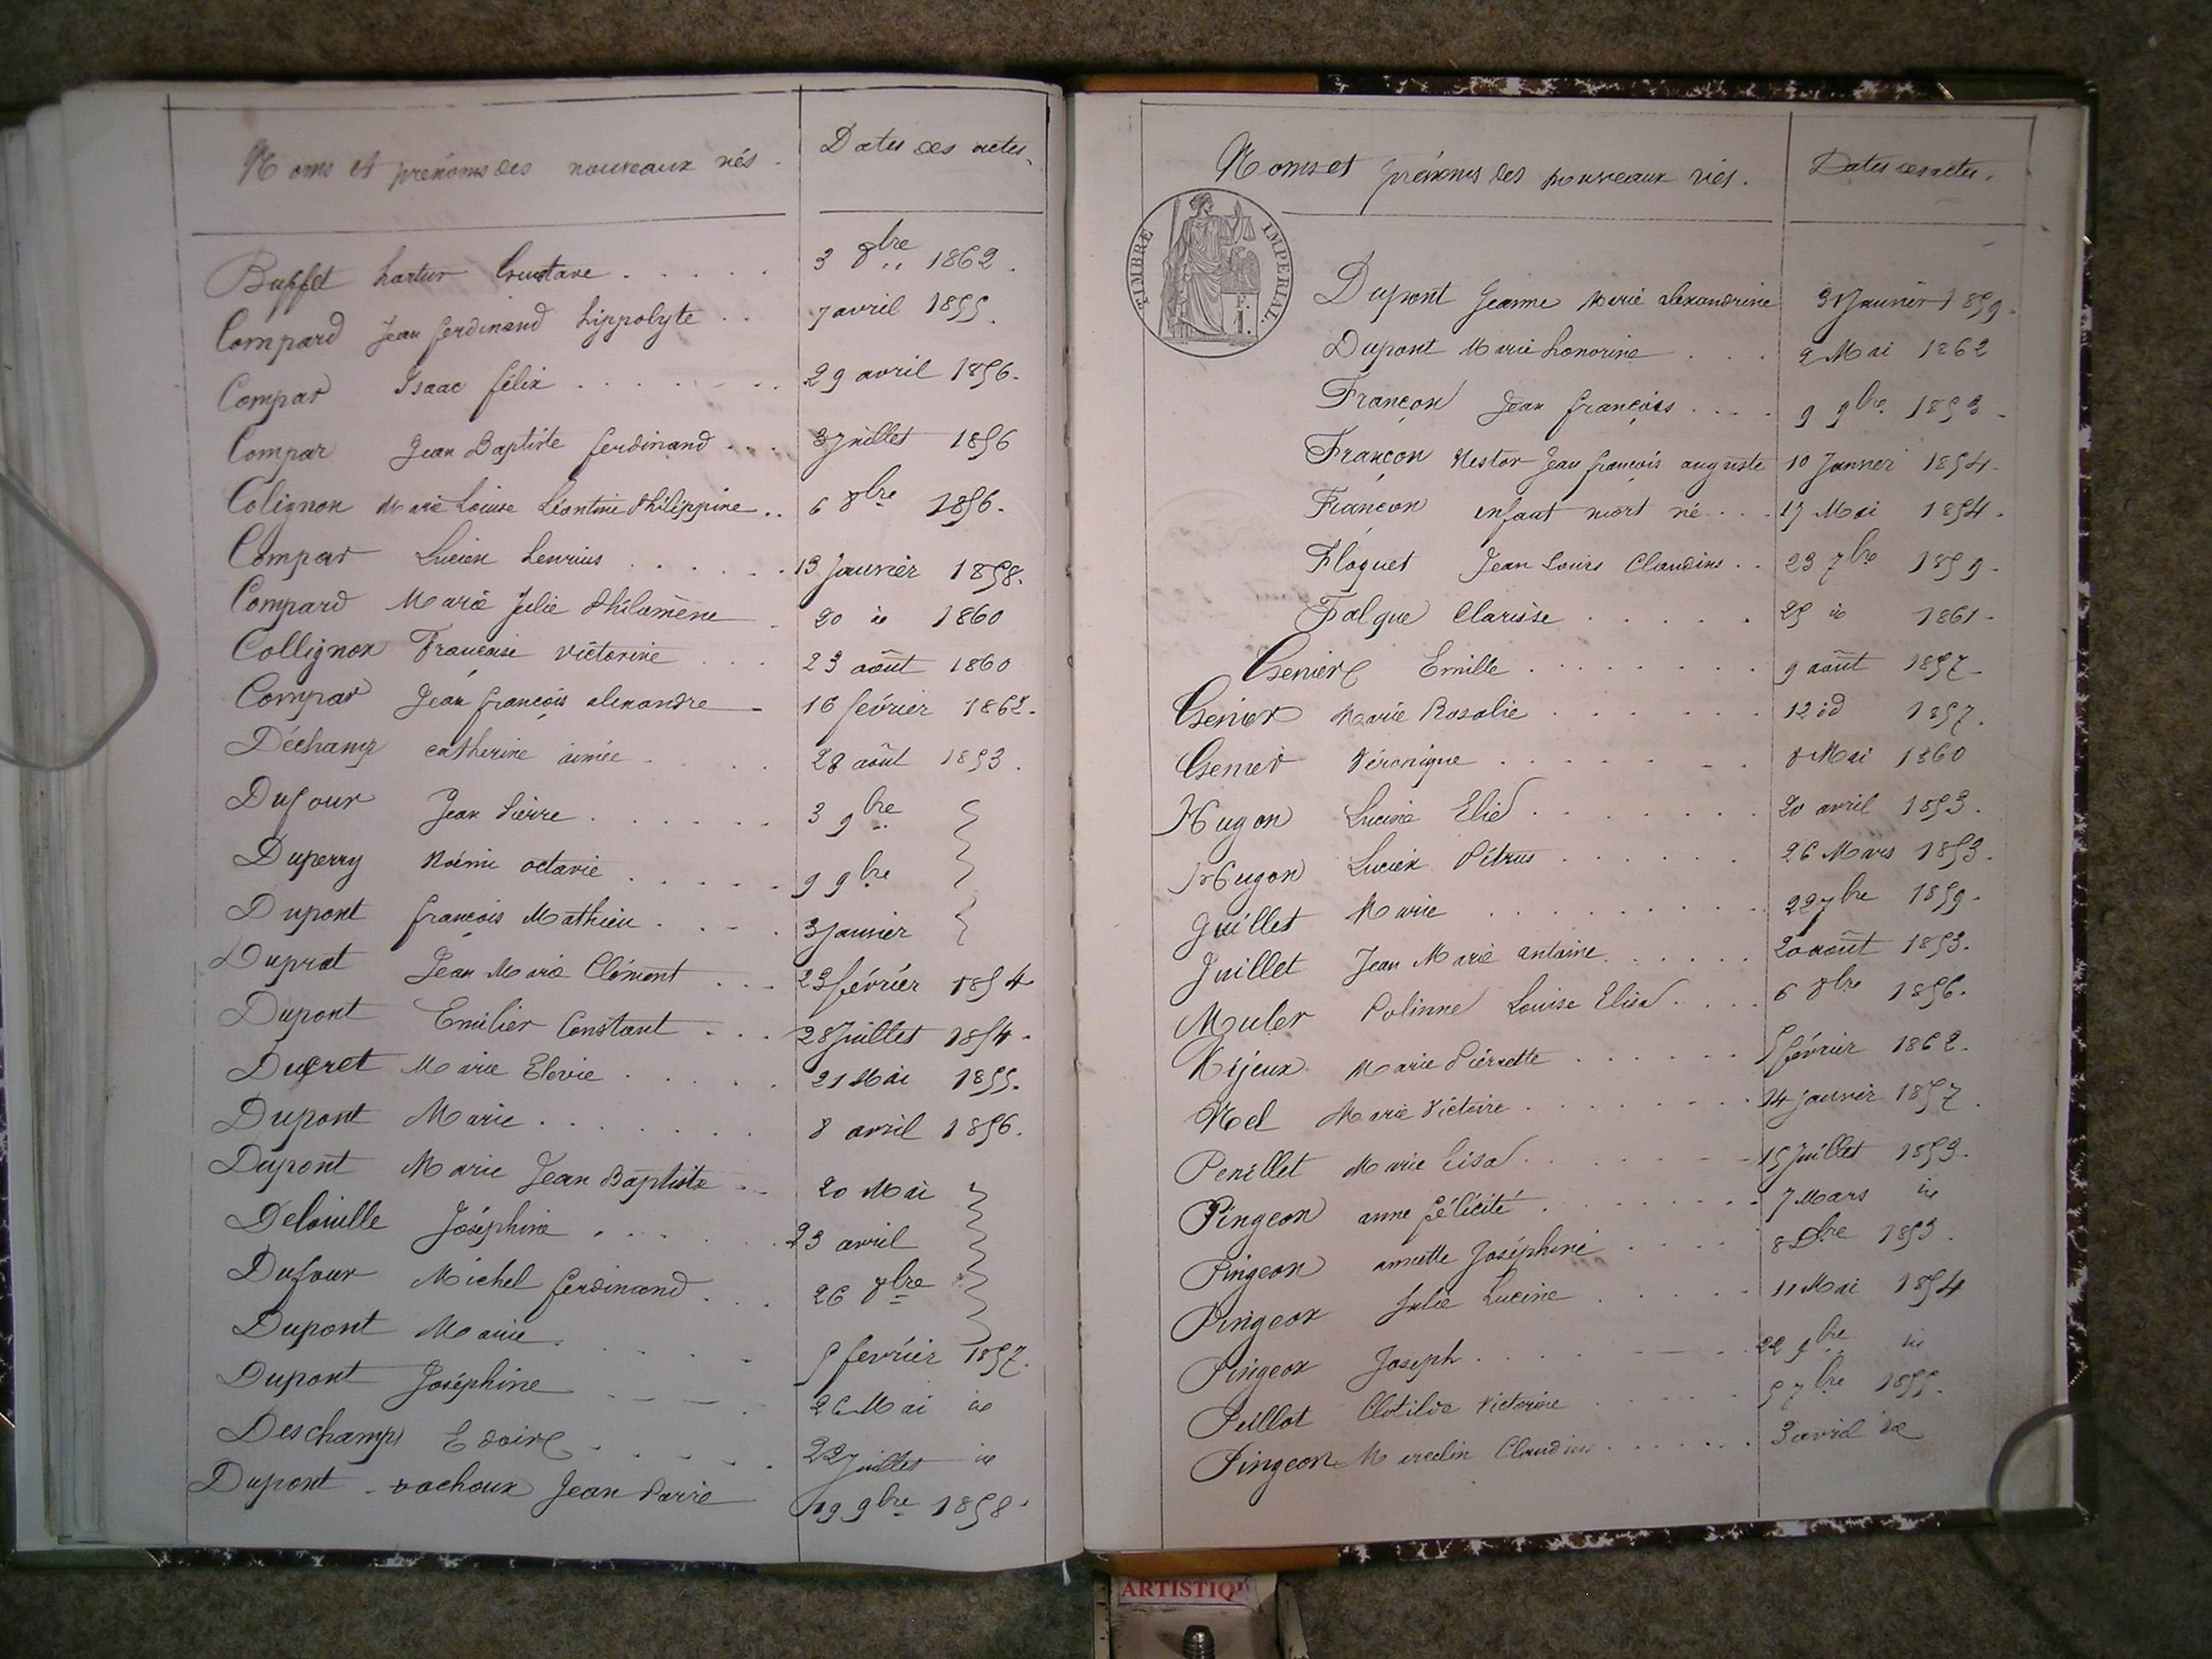 Noms et prénoms des nouveaux nés -
Dates des actes.
Buffet hartur Gustave . . . . . 3 8bre 1862.
Compard Jean ferdinand hippolyte . . 7 avril 1855.
Compar Isaac félix . . . . . . . 29 avril 1856.
Compar Jean Baptiste ferdinand . . . 3 Juillet 1856
Colignon Marie Louise Léontine Philippine . . 6 8bre 1856.
Compar Lucien henrius . . . . . . 13 Janvier 1858.
Compard Marie Julie Philomène - 20 id 1860
Collignon Francoise victorine . . . 23 août 1860
Compar Jean françois alexandre - 16 février 1862.
Déchamp catherine aimée . . . . 28 août 1853.
Dufour Jean Pierre . . . . . . 3 9bre
Duperry Noémi octavie . . . . . 9 9bre
Dupont françois Mathieu . . . . 3 Janvier
Duprat Jean Marie Clément . . . 23 février 1854
Dupont Emilier Constant . . . 28 Juillet 1854.
Ducret Marie Elovie . . . . . 21 Mai 1855.
Dupont Marie . . . . . . . 8 avril 1856.
Dupont Marie Jean Baptiste . . 20 Mai
Delouille Joséphine . . . . . . 23 avril
Dufour Michel ferdinand . . . 26 8bre
Dupont Marie . . . . . 5 fevrier 1857.
Dupont Joséphine . . . . 26 Mai id
Deschamps Edoire . . . . . 22 Juillet id
Dupont - vachoux Jean Parrie 19 9bre 1858.
Noms et prénoms des nouveaux nés.
Dates des actes.
TIMBRE IMPERIAL.
Dupont Jeanne Marie alexandrine 31 Janvier 1859.
Dupont Marie honorine . . . 2 Mai 1862
Françon Jean françois . . . . 9 9bre 1853.
Françon Nestor Jean françois auguste 10 Janvier 1854.
Françon enfant mort né . . . 17 Mai 1854.
Floquet Jean Louis Claudius . . 23 7bre 1859.
Falque Clarisse . . . . . 25 id 1861.
Genier Emille . . . . . . . . 9 août 1857.
Genier Marie Rosalie . . . . . . 12 id 1857.
Genier Véronique . . . . . . . 8 Mai 1860
Hugon Lucine Elie . . . . . . . 20 avril 1853.
Hugon Lucien Pétrus . . . . . . 26 Mars 1853.
Juillet Marie . . . . . . . . . 22 7bre 1859.
Juillet Jean Marie antoine . . . . . . 20 août 1853.
Muler Polinne Louise Elisa . . . . 6 8bre 1856.
Nijeux Marie Pierrette . . . . . . 5 février 1862.
Nel Marie Victoire . . . . . . . . 14 Janvier 1857.
Penillet Marie Eisa . . . . . . . 15 Juillet 1853.
Pingeon anne félicité . . . . . . . 7 Mars id
Pingeon annette Joséphine . . . . 8 Dbre 1853.
Pingeon Julie Lucine . . . . . 11 Mai 1854
Pingeon Joseph . . . . . . . 22 bre id
Peillot Clotilde Victorine . . . . . 5 7bre 1855.
Pingeon Marcelin Claudius . . . . . . 3 avril id
ARTISTIQU